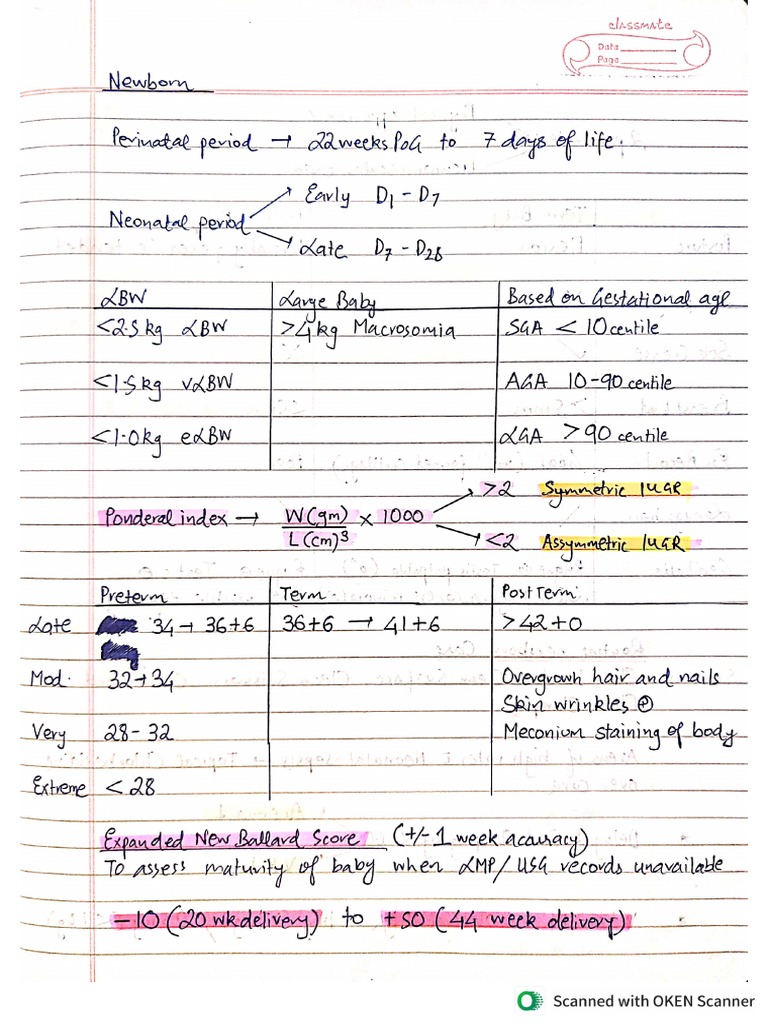 classmate
Date
Page
Newborn
Perinatal period → 22 weeks PoG to 7 days of life.
Neonatal period
Early D1 - D7
Late D7 - D28
LBW Large Baby Based on Gestational age
<2.5 kg LBW >4 kg Macrosomia SGA < 10 centile
<1.5 kg vLBW AGA 10-90 centile
<1.0 kg eLBW LGA > 90 centile
>2 Symmetric IUGR
Ponderal index → W(gm) / L(cm)³ × 1000
<2 Assymmetric IUGR
Preterm Term Post Term
Late 34 → 36+6 36+6 → 41+6 >42+0
Mod. 32→34 Overgrown hair and nails
Skin wrinkles ⓟ
Very 28 - 32 Meconium staining of body
Extreme < 28
Expanded New Ballard Score (+/- 1 week accuracy)
To assess maturity of baby when LMP/USG records unavailable
-10 (20 wk delivery) to +50 (44 week delivery)
Scanned with OKEN Scanner